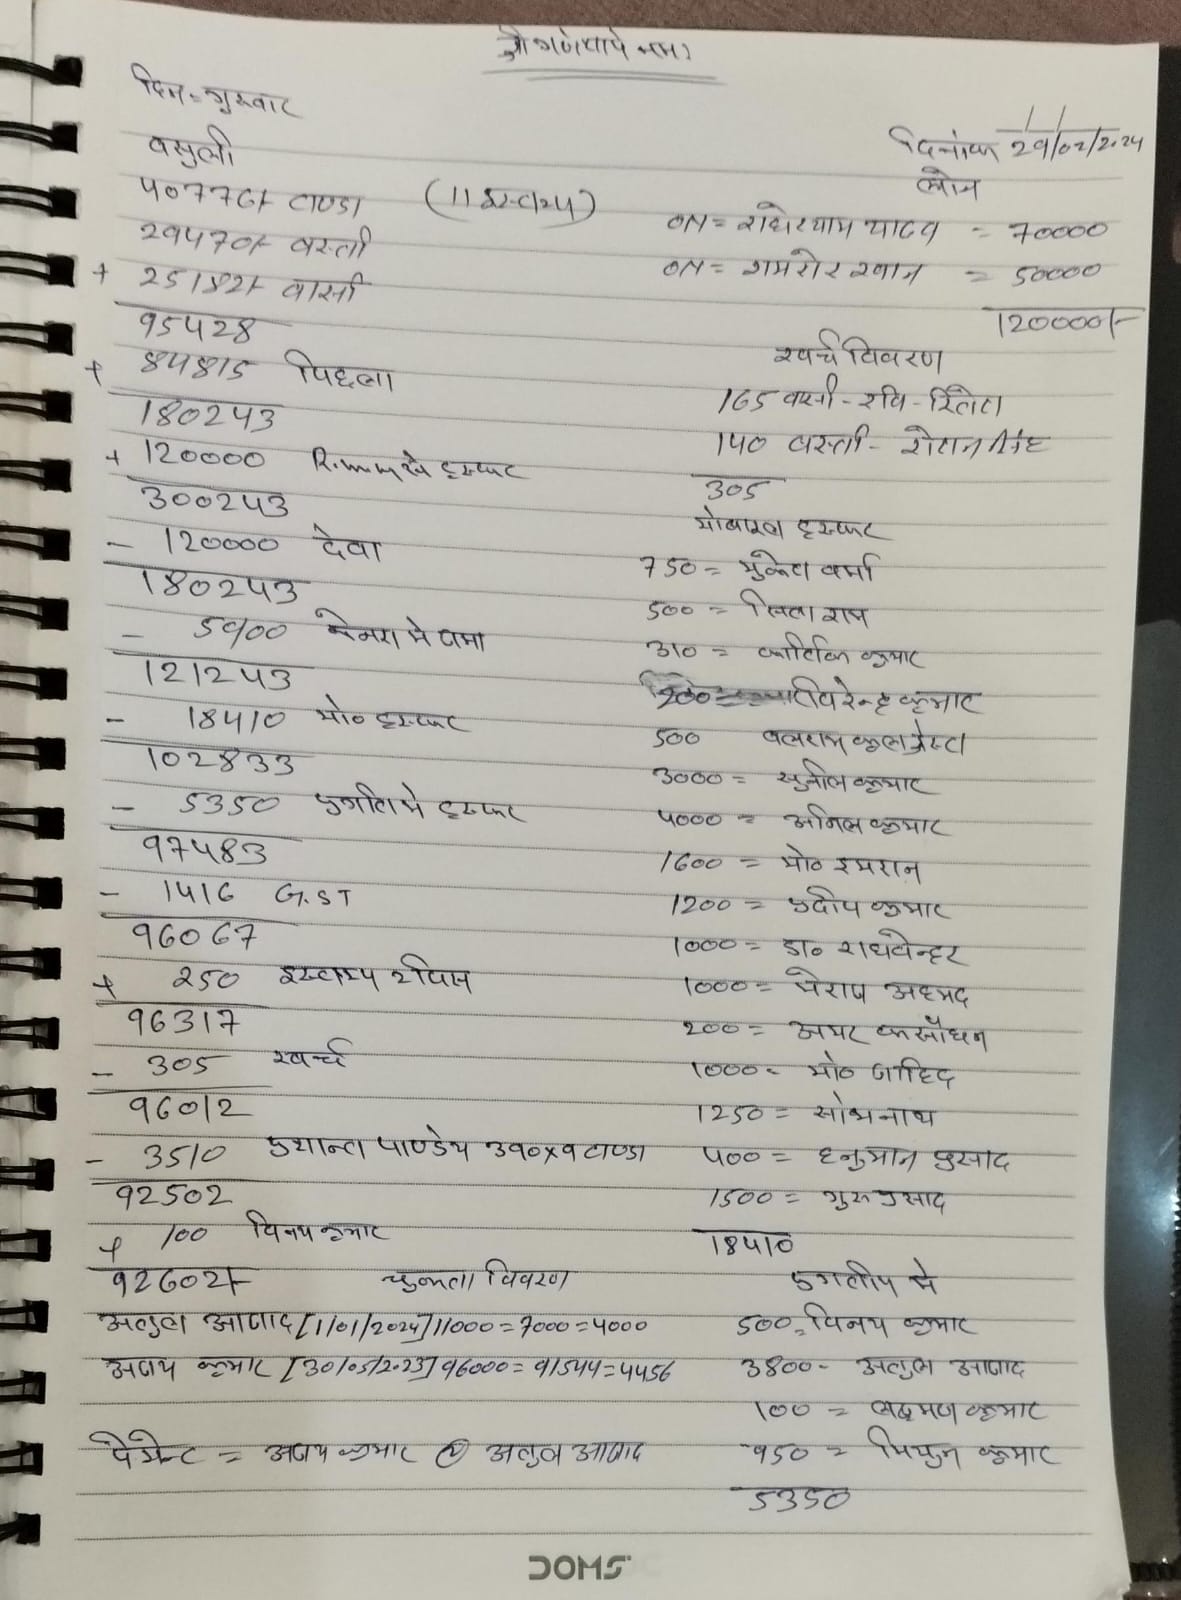 श्री गणेशाये नमः
दिन = गुरुवार
दिनांक 29/02/2024
वसुली
लोन
40776/- टाण्डा (11 इस्टाम्प)
ON = राधेश्याम यादव = 70000
29470/- बस्ती
ON = शमशेर खान = 50000
+ 25182/- वार्सी
120000/-
95428
खर्च विवरण
+ 84815 पिछला
165 वार्सी - रवि -
180243
140 बस्ती - रोशन सिंह
+ 120000 से ट्रान्सफर
305
300243
मोबाइल ट्रान्सफर
- 120000 देवा
750 = मुकेश वर्मा
180243
500 = राम
- 5900 केनरा मे जमा
310 = कार्तिक कुमार
121243
200 = विरेन्द्र कुमार
- 18410 मो० ट्रान्सफर
500 बलराम
102833
3000 = सुनील कुमार
- 5350 प्रगति मे ट्रान्सफर
4000 = अनिल कुमार
97483
1600 = मो० इमरान
- 1416 G.ST
1200 = प्रदीप कुमार
96067
1000 = डा० राघवेन्दर
+ 250 इस्टाम्प
1000 = मेराज अहमद
96317
200 = अमर कसौंधन
- 305 खर्च
1000 = मो० जाहिद
96012
1250 = सोभनाथ
- 3510 प्रशान्त पाण्डेय 390x9 टाण्डा
400 = हनुमान प्रसाद
92502
1500 = गुरु प्रसाद
+ 100 विनय कुमार
18410
92602/- चुकता विवरण
प्रगतीय मे
अतुल आजाद [1/01/2024] 11000 = 7000 = 4000
500 = विनय कुमार
अजय कुमार [30/05/2023] 96000 = 91544 = 4456
3800 - अतुल आजाद
100 = लक्ष्मण कुमार
पेमेन्ट = अजय कुमार @ अतुल आजाद
950 = मिथुन कुमार
5350
DOMS